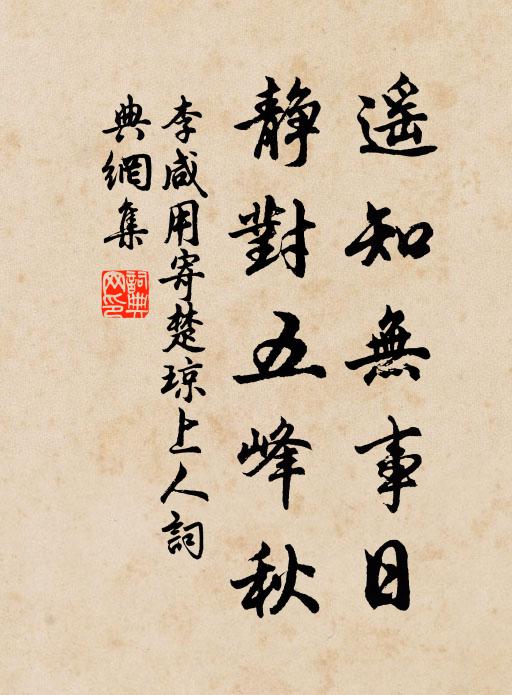 遥知無事日
靜對五峰秋
李咸用寄楚琼上人詞
典網集
詞典网印